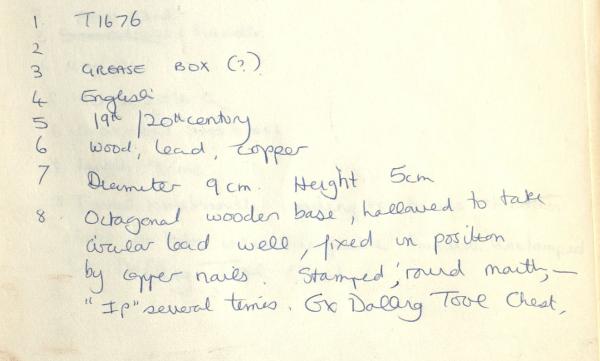 1 T1676
2
3 GREASE BOX (?)
4 English
5 19th / 20th century
6 Wood, lead, copper
7 Diameter 9 cm. Height 5cm
8. Octagonal wooden base, hollowed to take
circular lead well, fixed in position
by copper nails. Stamped, round mouth, —
"IP" several times. Ex Tool Chest,